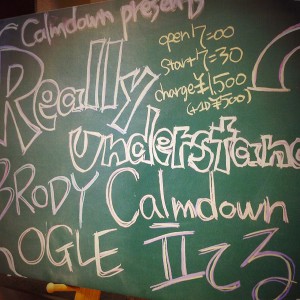 Calmdown presents
open 17=00
start 17=30
charge ¥1,500
(+1D ¥500)
Really
Understand
BRODY Calmdown
OGLE II